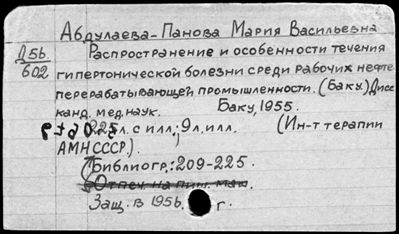 Абдулаева-Панова Мария Васильевна
Д56
602
Распространение и особенности течения
гипертонической болезни среди рабочих нефте
перерабатывающей промышленности. (Баку.) Дисс
канд. мед. наук. Баку, 1955.
225 л. с илл.; 9 л. илл. (Ин-т терапии
АМН СССР.).
Библиогр.: 209-225.
Отпеч. на пиш. маш.
Защ. в 1956 г.